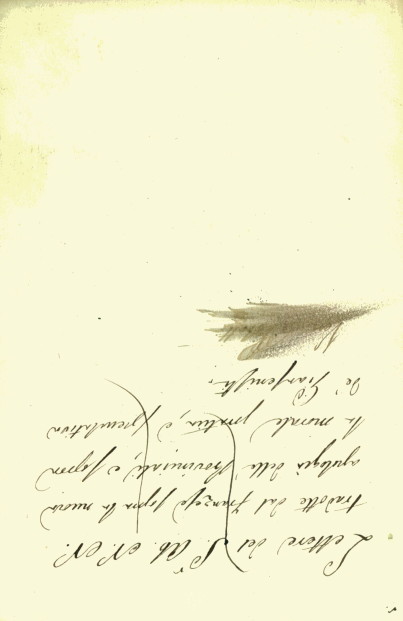 Lettere del S.r Ab. N. N.
tradotte dal Franzese sopra la nuova
apologia delle Provinciali, e sopra
la morale pratica, e speculativa
de' Giansenisti.